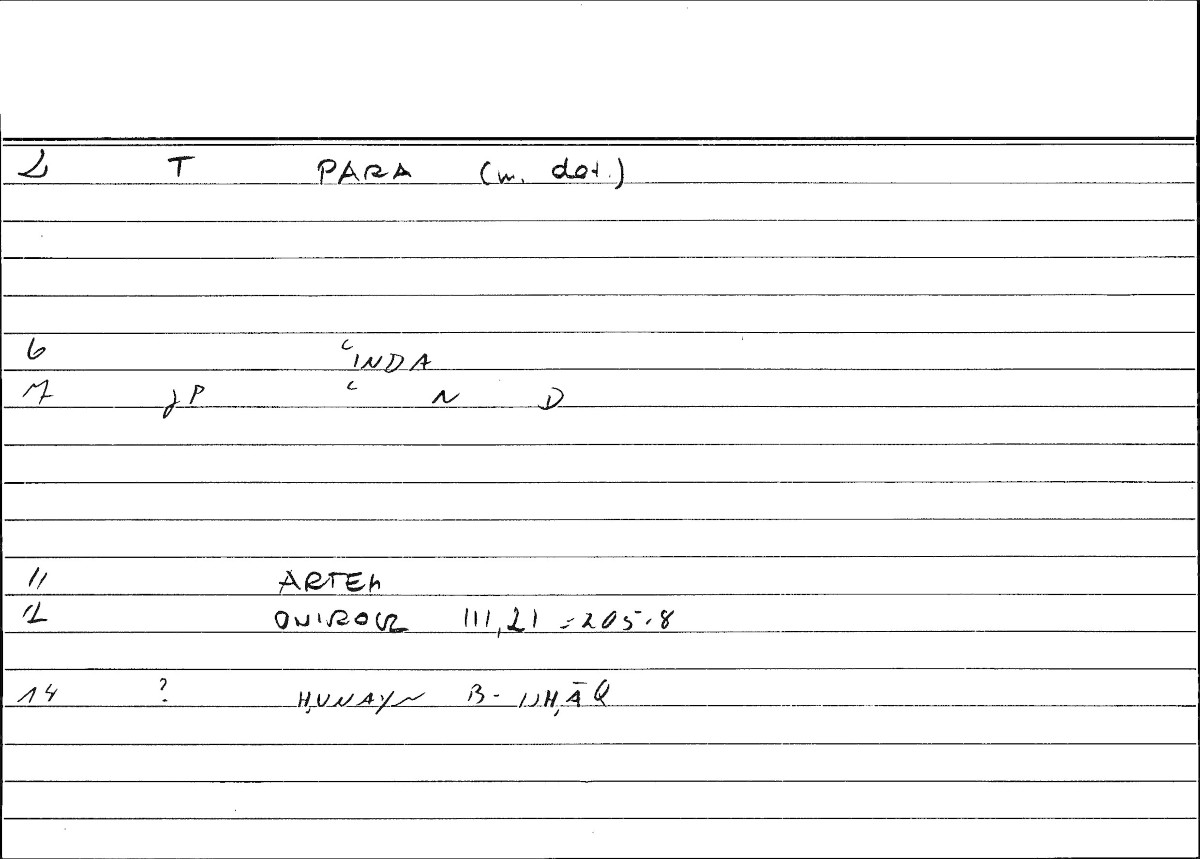 2 T PARA (m. dat.)
6 ʿINDA
7 jP ʿ N D
11 ARTEM
12 ONIROCR III,21 = 205.8
14 ? H,UNAYN B- ISH,ĀQ